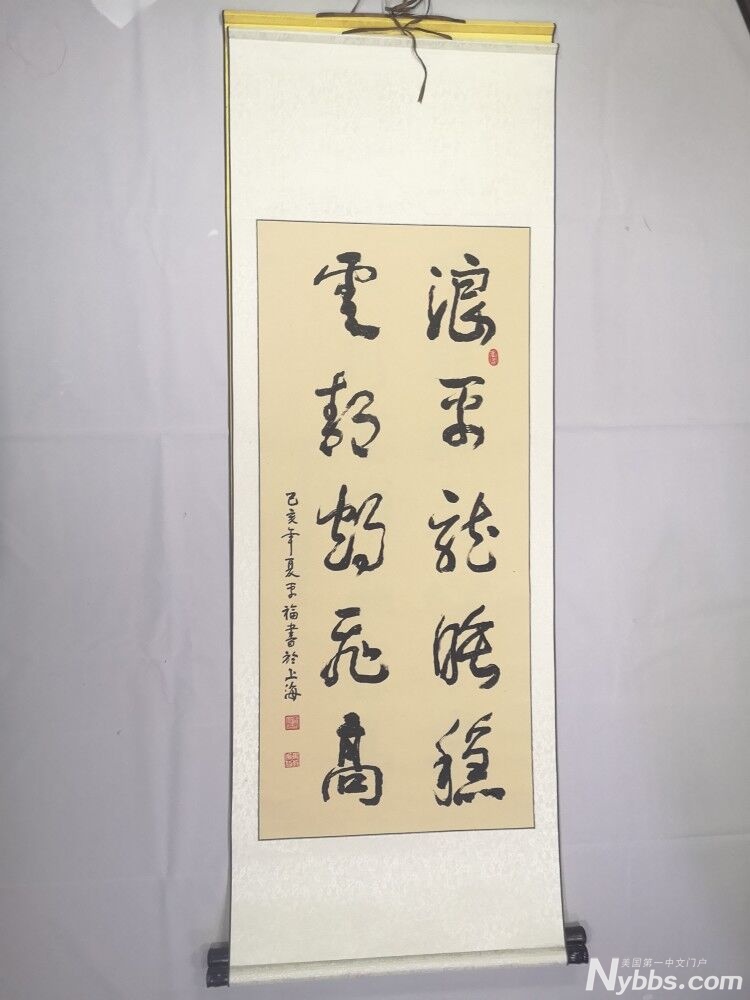 浪平龍睡穩
雲靜鶴飛高
己亥年夏平福書於上海
美国第一中文门户
Nybbs.com